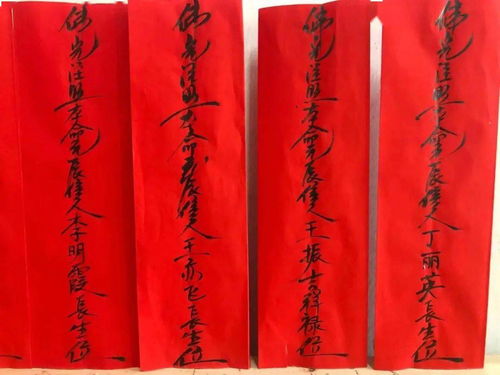 佛光注照本命元辰佳人丁丽英長生位
佛光注照本命元辰佳人王振吉祥禄位
佛光注照本命元辰佳人王亦飞長生位
佛光注照本命元辰佳人李明霞長生位